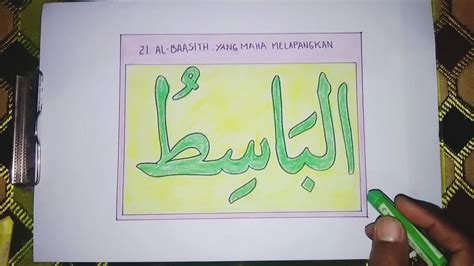 21. AL-BAASITH : YANG MAHA MELAPANGKAN
البَاسِطُ